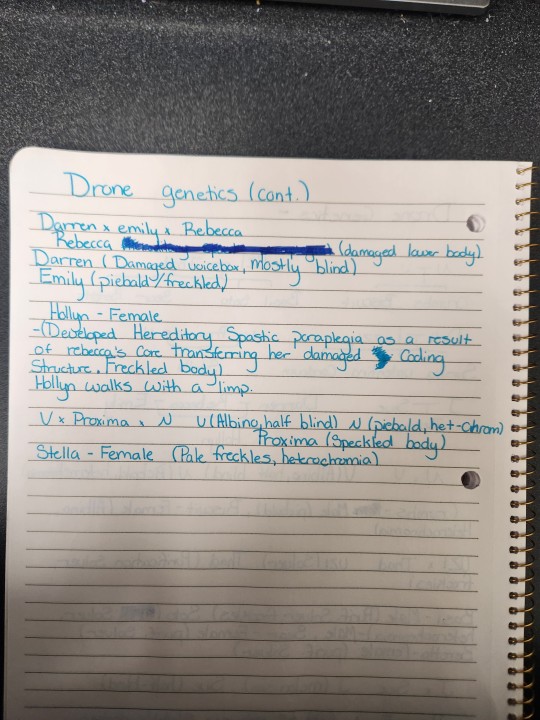 Drone genetics (cont.)
Darren x emily x Rebecca
Rebecca (damaged lower body)
Darren (Damaged voicebox, mostly blind)
Emily (piebald/freckled)
Hollyn - Female
-(Developed Hereditory Spastic paraplegia as a result
of rebecca's core transferring her damaged Coding
Structure. Freckled body)
Hollyn walks with a limp.
V x Proxima x N V (Albino, half blind) N (piebald, het-chrom)
Proxima (Speckled body)
Stella - Female (Pale freckles, hetrochromia)